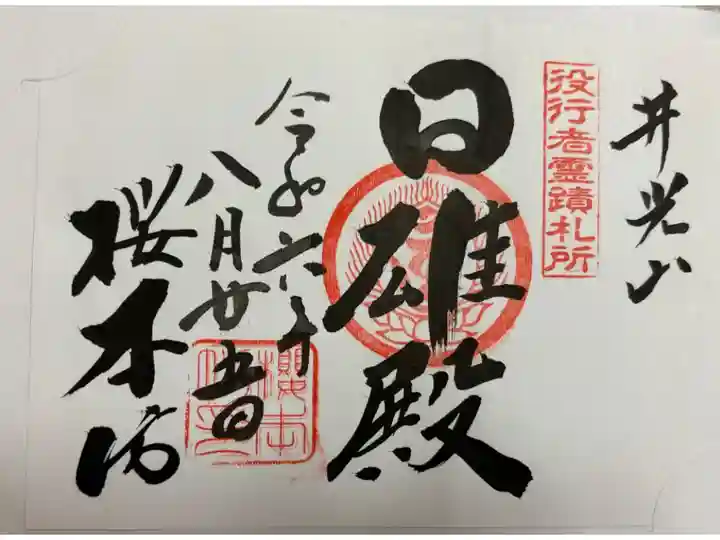 井光山
役行者霊蹟札所
日雄殿
令和六年
八月廿五日
桜本坊